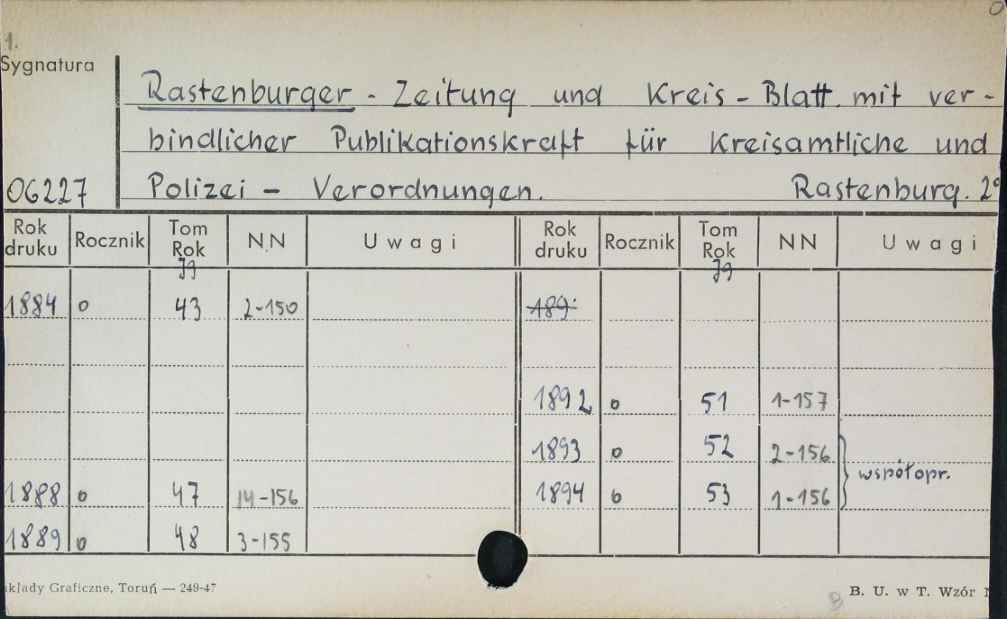 1.
Sygnatura
Rastenburger - Zeitung und Kreis - Blatt mit ver-
bindlicher Publikationskraft für Kreisamtliche und
06227 Polizei - Verordnungen. Rastenburg. 2°
Rok druku Rocznik Tom Rok NN Uwagi Rok druku Rocznik Tom Rok NN Uwagi
Jg Jg
1884 o 43 2-150 189
1892 o 51 1-157
1893 o 52 2-156
współopr.
1888 o 47 14-156 1894 o 53 1-156
1889 o 48 3-155
kłady Graficzne, Toruń — 249-47 B. U. w T. Wzór